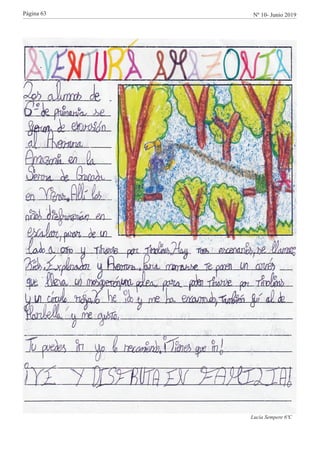 Página 63
Nº 10- Junio 2019
AVENTURA AMAZONIA
Los alumnos de
6º de primaria se
fueron de excursión
al Aventura
Amazonia en la
Sierra de
en Allí los
niños disfrutarían en
escalar, pasar de un
lado a otro y tirarse por tirolinas. Hay tres escenarios, se llaman:
Kids, Explorador y Aventura. Para te ponen un arnés
que lleva un mosquetón, una polea para poder tirarse por tirolinas
y un Yo he ido y me ha encantado, también fui al de
Marbella y me gustó.
Tu puedes ir yo lo recomiendo, ¡Tienes que ir!
¡VE Y DISFRUTA EN FAMILIA!
Lucía Sempere 6ºC